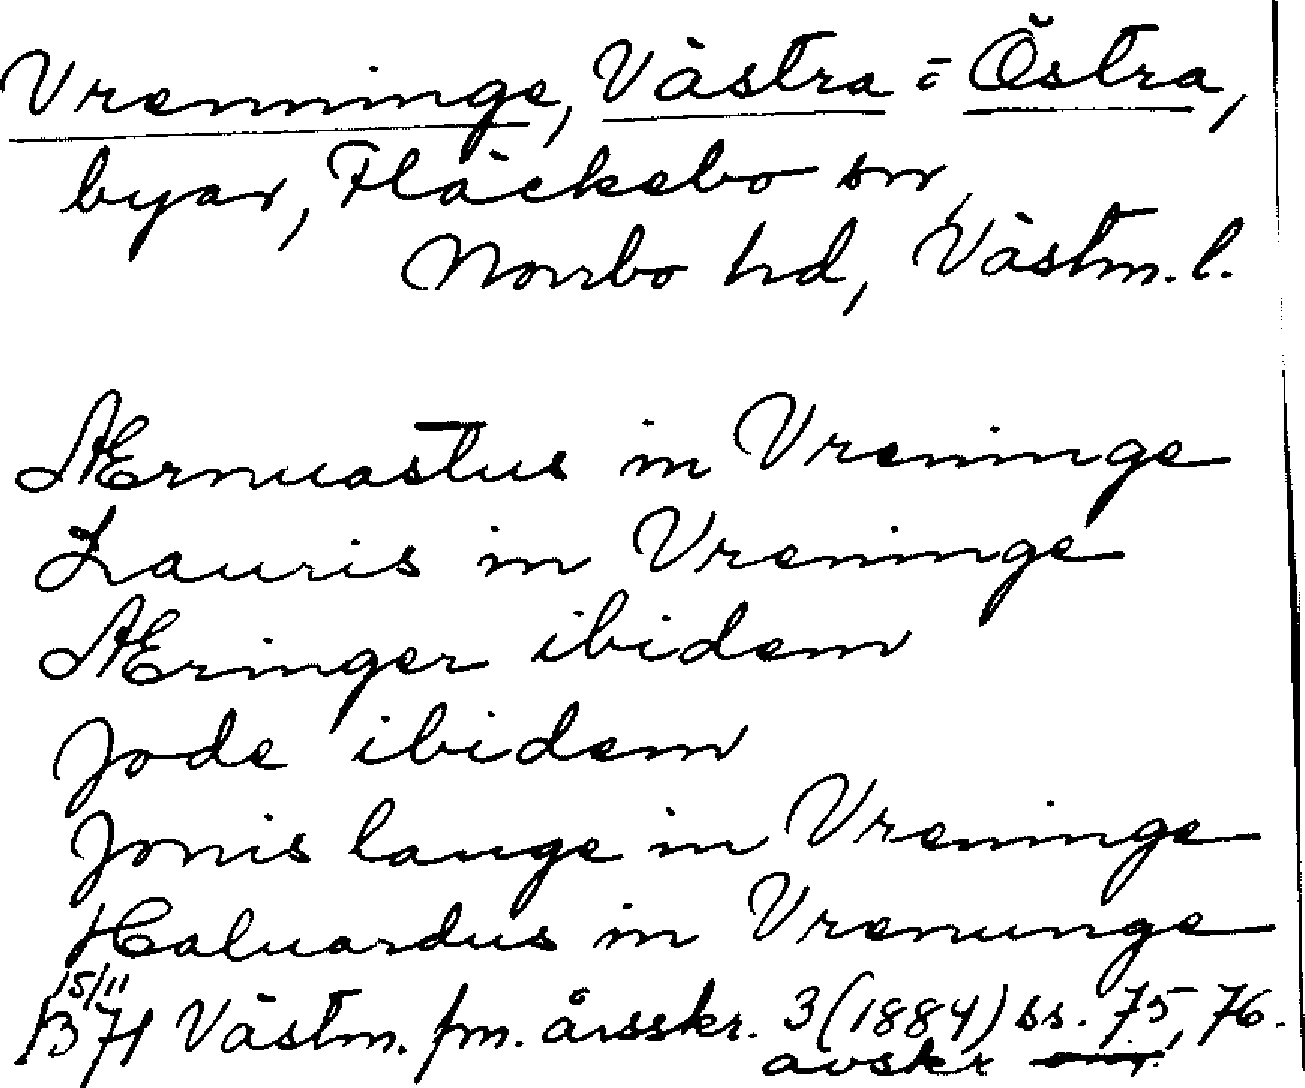 Vrenninge, Västra o Östra,
byar, Fläckebo sn,
Norrbo hd, Västm. l.
Ærnuastus in Vreninge
Lauris in Vreninge
Æringer ibidem
Jode ibidem
Jonis lange in Vreninge
Haluardus in Vrenunge
15/11
B 71 Västm. fm. årsskr. 3 (1884) ss. 75, 76.
avskr